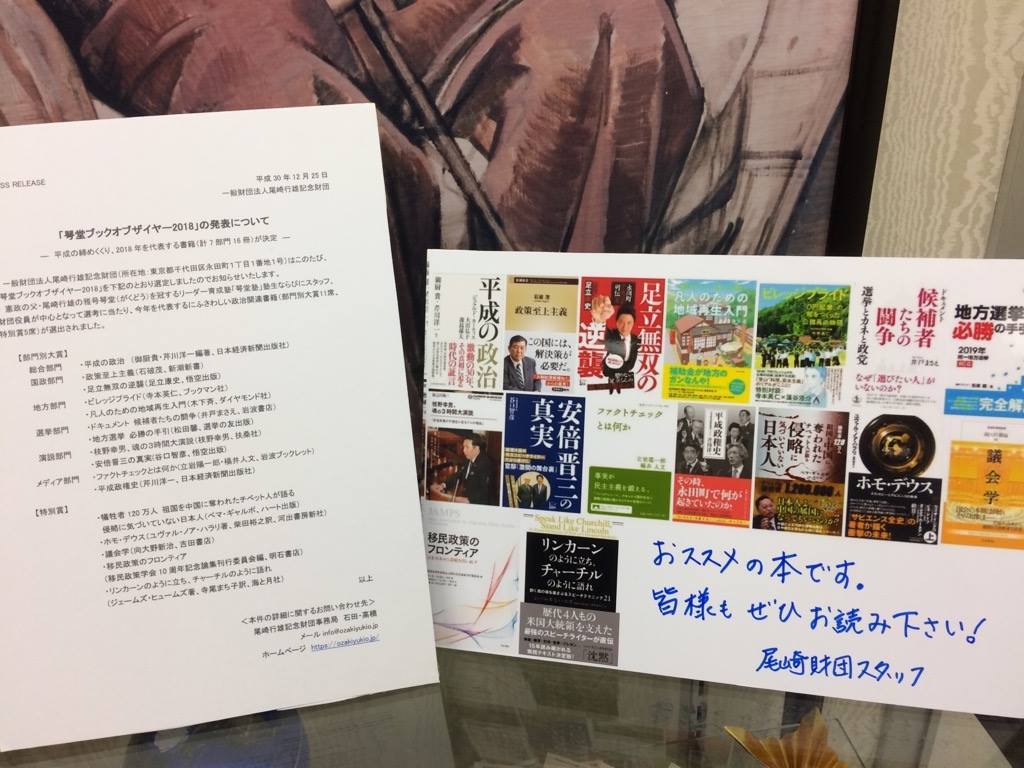 SS RELEASE
平成30年12月25日
一般財団法人尾崎行雄記念財団
「咢堂ブックオブザイヤー2018」の発表について
― 平成の締めくくり、2018年を代表する書籍(計7部門16冊)が決定 ―
一般財団法人尾崎行雄記念財団(所在地:東京都千代田区永田町1丁目1番地1号)はこのたび、
咢堂ブックオブザイヤー2018」を下記のとおり選定しましたのでお知らせいたします。
憲政の父・尾崎行雄の雅号咢堂(がくどう)を冠するリーダー育成塾「咢堂塾」塾生ならびにスタッフ、
財団役員が中心となって選考に当たり、今年を代表するにふさわしい政治関連書籍(部門別大賞11席、
特別賞5席)が選出されました。
【部門別大賞】
総合部門 ・平成の政治 (御厨貴・芹川洋一編著、日本経済新聞出版社)
国政部門 ・政策至上主義(石破茂、新潮新書)
・足立無双の逆襲(足立康史、悟空出版)
地方部門 ・ビレッジプライド(寺本英仁、ブックマン社)
・凡人のための地域再生入門(木下斉、ダイヤモンド社)
選挙部門 ・ドキュメント 候補者たちの闘争(井戸まさえ、岩波書店)
・地方選挙 必勝の手引(松田馨、選挙の友出版)
演説部門 ・枝野幸男、魂の3時間大演説(枝野幸男、扶桑社)
メディア部門 ・安倍晋三の真実(谷口智彦、悟空出版)
・ファクトチェックとは何か(立岩陽一郎・楊井人文、岩波ブックレット)
・平成政権史(芹川洋一、日本経済新聞出版社)
【特別賞】
・犠牲者120万人 祖国を中国に奪われたチベット人が語る
侵略に気づいていない日本人(ペマ・ギャルポ、ハート出版)
・ホモ・デウス(ユヴァル・ノア・ハラリ著、柴田裕之訳、河出書房新社)
・議会学(向大野新治、吉田書店)
・移民政策のフロンティア
(移民政策学会10周年記念論集刊行委員会編、明石書店)
・リンカーンのように立ち、チャーチルのように語れ
(ジェームズ・ヒュームズ著、寺尾まち子訳、海と月社)
以上
<本件の詳細に関するお問い合わせ先>
尾崎行雄記念財団事務局 石田・高橋
メール info@ozakiyukio.jp
ホームページ https://ozakiyukio.jp/
平成の政治
御厨貴・芹川洋一
激動の30年、
その真相に迫る
時代の
石破茂
政策至上主義
この国には、
解決策が
必要だ。
永田町
列伝
足立無双の
逆襲
足立康史
凡人のための
地域再生入門
補助金が地方の
ガンなんや!
ビレッジプライド
寺本英仁×藻谷浩介
選挙とカネと政党
ドキュメント
候補者
たちの
闘争
井戸まさえ
なぜ「選びたい人」が
いないのか?
地方選挙
必勝の手引
2019年
完全解
枝野幸男、
魂の3時間大演説
安倍晋三の
真実
谷口智彦
ファクトチェック
とは何か
立岩陽一郎
楊井人文
事実が
民主主義を鍛える。
平成政権史
芹川洋一
その時、
永田町で何が
起きていたのか?
侵略に
気づいていない
日本人
ホモ・デウス
上
『サピエンス全史』の
衝撃の未来!
議会学
JAMPS
移民政策の
フロンティア
Speak Like Churchill,
Stand Like Lincoln
リンカーン
のように立ち、
チャーチル
のように語れ
歴代4人もの
米国大統領を支えた
最強のスピーチライターが直伝
沈黙
おススメの本です。
皆様も ぜひ お読み下さい!
尾崎財団スタッフ